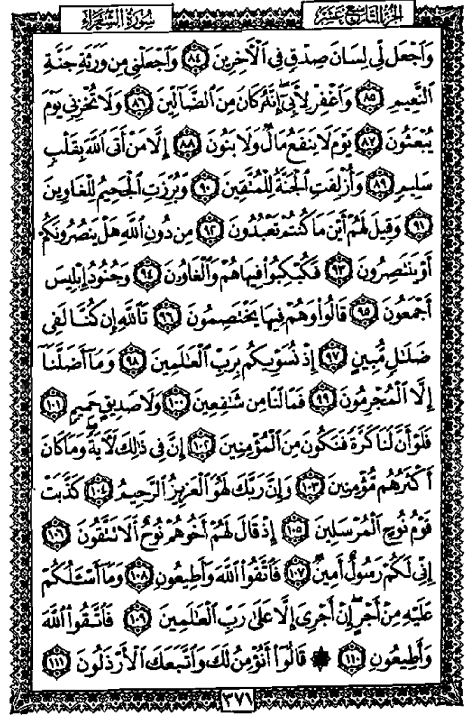 الجزء التاسع عشر سورة الشعراء
وَٱجْعَل لِّى لِسَانَ صِدْقٍ فِى ٱلْأَخِرِينَ ٨٤ وَٱجْعَلْنِى مِن وَرَثَةِ جَنَّةِ
ٱلنَّعِيمِ ٨٥ وَٱغْفِرْ لِأَبِىٓ إِنَّهُۥ كَانَ مِنَ ٱلضَّآلِّينَ ٨٦ وَلَا تُخْزِنِى يَوْمَ
يُبْعَثُونَ ٨٧ يَوْمَ لَا يَنفَعُ مَالٌ وَلَا بَنُونَ ٨٨ إِلَّا مَنْ أَتَى ٱللَّهَ بِقَلْبٍ
سَلِيمٍ ٨٩ وَأُزْلِفَتِ ٱلْجَنَّةُ لِلْمُتَّقِينَ ٩٠ وَبُرِّزَتِ ٱلْجَحِيمُ لِلْغَاوِينَ
٩١ وَقِيلَ لَهُمْ أَيْنَ مَا كُنتُمْ تَعْبُدُونَ ٩٢ مِن دُونِ ٱللَّهِ هَلْ يَنصُرُونَكُمْ
أَوْ يَنتَصِرُونَ ٩٣ فَكُبْكِبُوا۟ فِيهَا هُمْ وَٱلْغَاوُۥنَ ٩٤ وَجُنُودُ إِبْلِيسَ
أَجْمَعُونَ ٩٥ قَالُوا۟ وَهُمْ فِيهَا يَخْتَصِمُونَ ٩٦ تَٱللَّهِ إِن كُنَّا لَفِى
ضَلَٰلٍ مُّبِينٍ ٩٧ إِذْ نُسَوِّيكُم بِرَبِّ ٱلْعَٰلَمِينَ ٩٨ وَمَآ أَضَلَّنَآ
إِلَّا ٱلْمُجْرِمُونَ ٩٩ فَمَا لَنَا مِن شَٰفِعِينَ ١٠٠ وَلَا صَدِيقٍ حَمِيمٍ ١٠١
فَلَوْ أَنَّ لَنَا كَرَّةً فَنَكُونَ مِنَ ٱلْمُؤْمِنِينَ ١٠٢ إِنَّ فِى ذَٰلِكَ لَأٓيَةً وَمَا كَانَ
أَكْثَرُهُم مُّؤْمِنِينَ ١٠٣ وَإِنَّ رَبَّكَ لَهُوَ ٱلْعَزِيزُ ٱلرَّحِيمُ ١٠٤ كَذَّبَتْ
قَوْمُ نُوحٍ ٱلْمُرْسَلِينَ ١٠٥ إِذْ قَالَ لَهُمْ أَخُوهُمْ نُوحٌ أَلَا تَتَّقُونَ ١٠٦
إِنِّى لَكُمْ رَسُولٌ أَمِينٌ ١٠٧ فَٱتَّقُوا۟ ٱللَّهَ وَأَطِيعُونِ ١٠٨ وَمَآ أَسْـَٔلُكُمْ
عَلَيْهِ مِنْ أَجْرٍ إِنْ أَجْرِىَ إِلَّا عَلَىٰ رَبِّ ٱلْعَٰلَمِينَ ١٠٩ فَٱتَّقُوا۟ ٱللَّهَ
وَأَطِيعُونِ ١١٠ ۞ قَالُوٓا۟ أَنُؤْمِنُ لَكَ وَٱتَّبَعَكَ ٱلْأَرْذَلُونَ ١١١
٣٧١